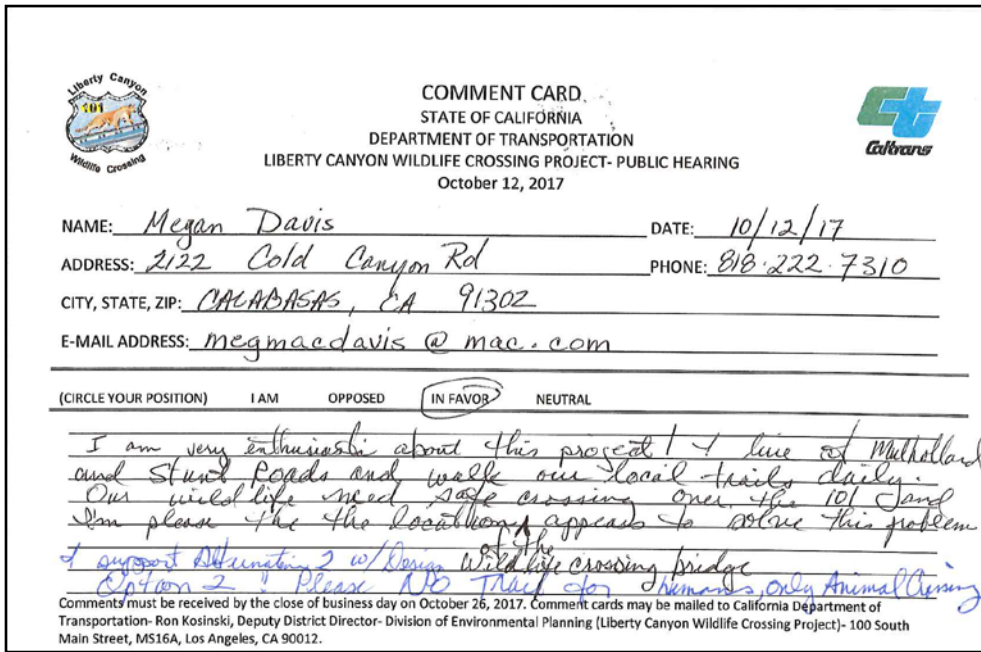 Liberty Canyon
101
Wildlife Crossing
COMMENT CARD
STATE OF CALIFORNIA
DEPARTMENT OF TRANSPORTATION
LIBERTY CANYON WILDLIFE CROSSING PROJECT- PUBLIC HEARING
October 12, 2017
Caltrans
NAME: Megan Davis DATE: 10/12/17
ADDRESS: 2122 Cold Canyon Rd PHONE: 818.222.7310
CITY, STATE, ZIP: CALABASAS, CA 91302
E-MAIL ADDRESS: megmacdavis @ mac.com
(CIRCLE YOUR POSITION) I AM OPPOSED IN FAVOR NEUTRAL
I am very enthusiastic about this project! I live at Mulholland
and Stunt Roads and walk our local trails daily.
Our wildlife need safe crossing over the 101 and
I'm please the the location appears to solve this problem
of the
Wildlife crossing bridge
I support Alternative 2 w/ Design
Option 2! Please NO Trail for humans, only Animal Crossing
Comments must be received by the close of business day on October 26, 2017. Comment cards may be mailed to California Department of
Transportation- Ron Kosinski, Deputy District Director- Division of Environmental Planning (Liberty Canyon Wildlife Crossing Project)- 100 South
Main Street, MS16A, Los Angeles, CA 90012.